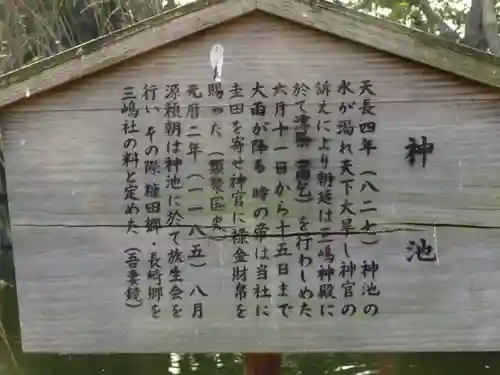 神池
天長四年（八二七）神池の
水が涸れ天下大旱し神官の
訴えにより朝廷は三嶋神殿に
於て（雨乞）を行わしめた
六月十一日から十五日まで
大雨が降る 時の帝は当社に
圭田を寄せ神官に禄金財帛を
賜った（類聚国史）
元暦二年（一一八五）八月
源頼朝は神池に於て放生会を
行い その際糠田郷・長崎郷を
三嶋社の料と定めた（吾妻鏡）